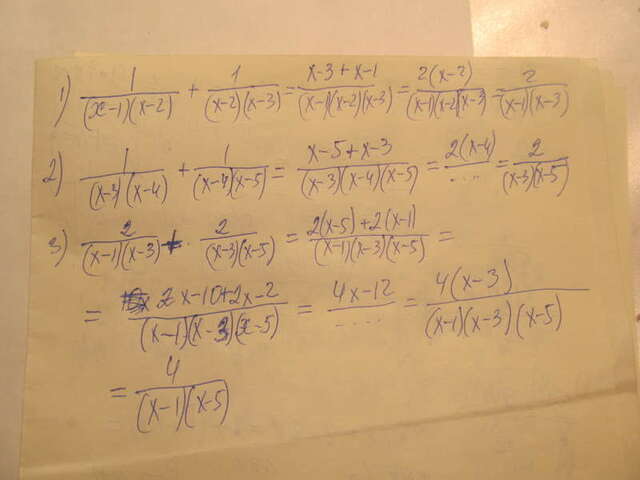 1) 1/((x-1)(x-2)) + 1/((x-2)(x-3)) = (x-3+x-1)/((x-1)(x-2)(x-3)) = 2(x-2)/((x-1)(x-2)(x-3)) = 2/((x-1)(x-3))
2) 1/((x-3)(x-4)) + 1/((x-4)(x-5)) = (x-5+x-3)/((x-3)(x-4)(x-5)) = 2(x-4)/..... = 2/((x-3)(x-5))
3) 2/((x-1)(x-3)) + 2/((x-3)(x-5)) = (2(x-5)+2(x-1))/((x-1)(x-3)(x-5)) =
= (2x-10+2x-2)/((x-1)(x-3)(x-5)) = (4x-12)/..... = 4(x-3)/((x-1)(x-3)(x-5))
= 4/((x-1)(x-5))